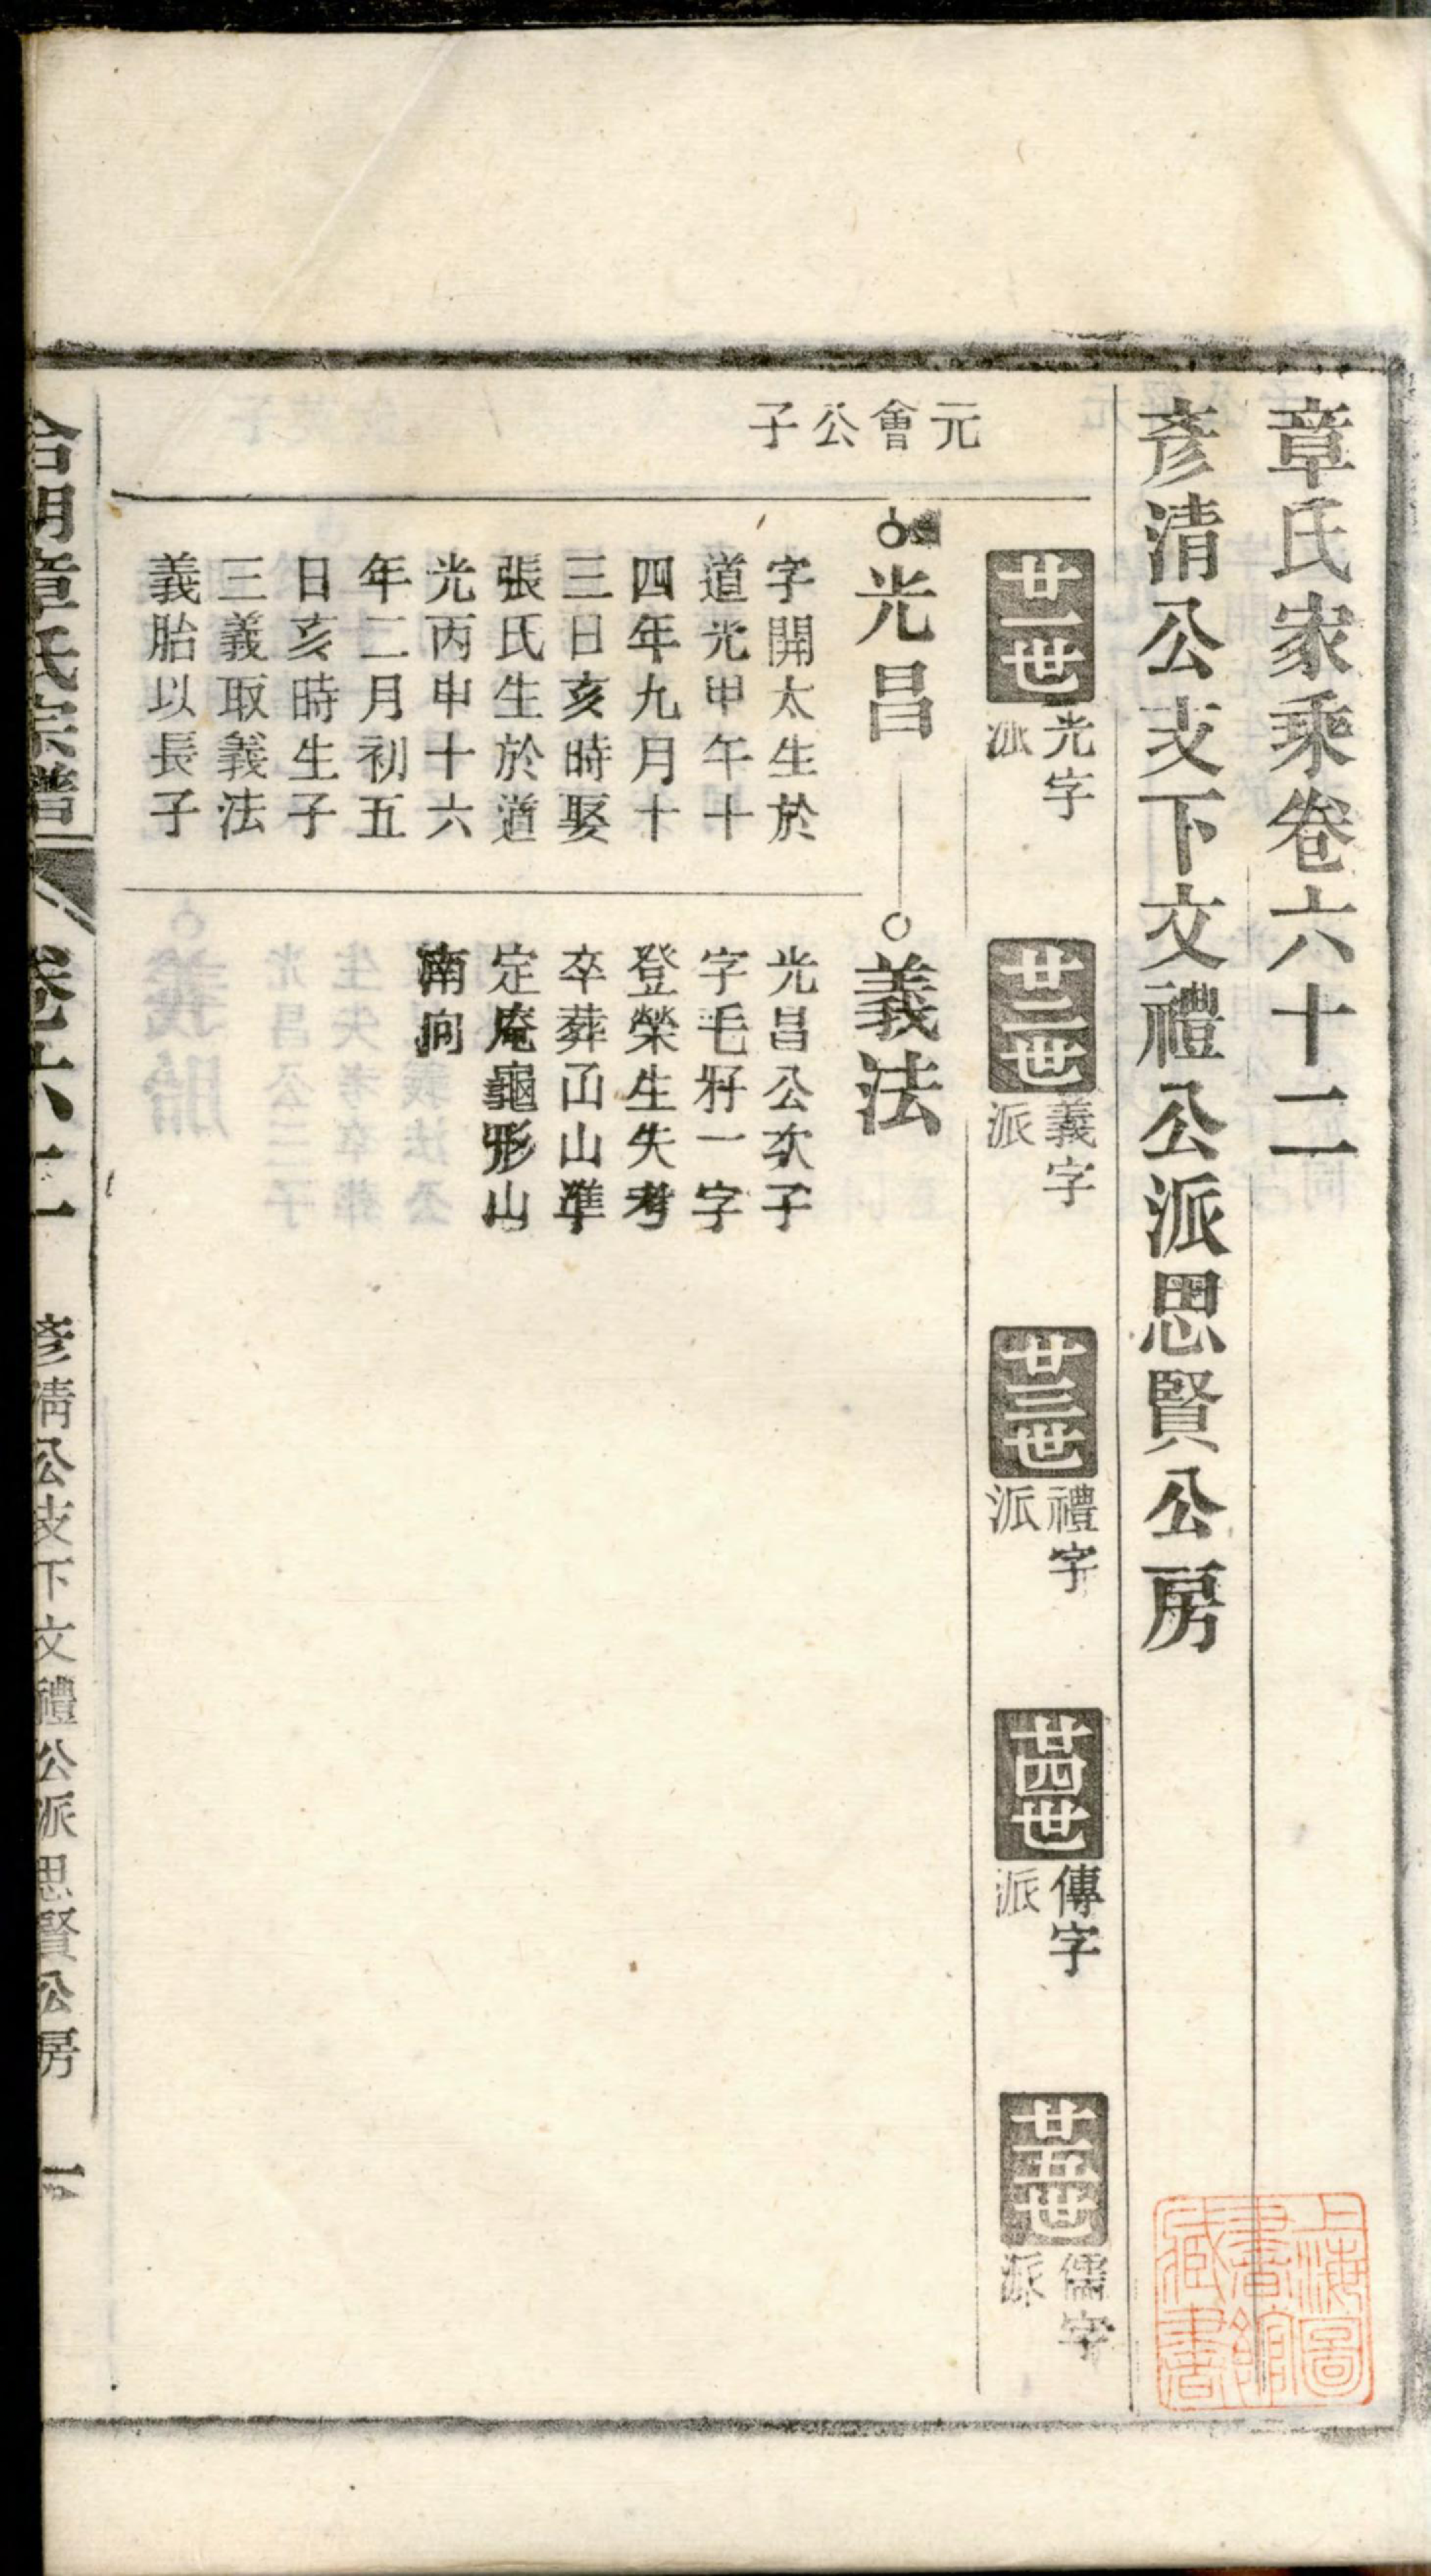 章氏家乘卷六十二
彥清公支下文禮公派思賢公房
廿一世 光字派
廿二世 義字派
廿三世 禮字派
廿四世 傳字派
廿五世 儒字派
元會公子
光昌
字開太生於
道光甲午十
四年九月十
三日亥時娶
張氏生於道
光丙申十六
年二月初五
日亥時生子
三義取義法
義胎以長子
義法
光昌公次子
字毛籽一字
登榮生失考
卒葬山準
定庵龜形山
南向
章氏宗譜
卷六十二
彥清公支下文禮公派思賢公房
一
上海圖
書館
藏書